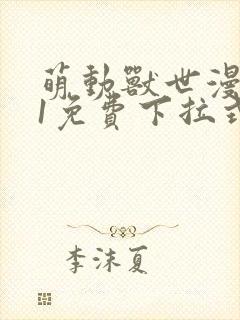 萌動獸世漫
1免費下拉式
李沫夏